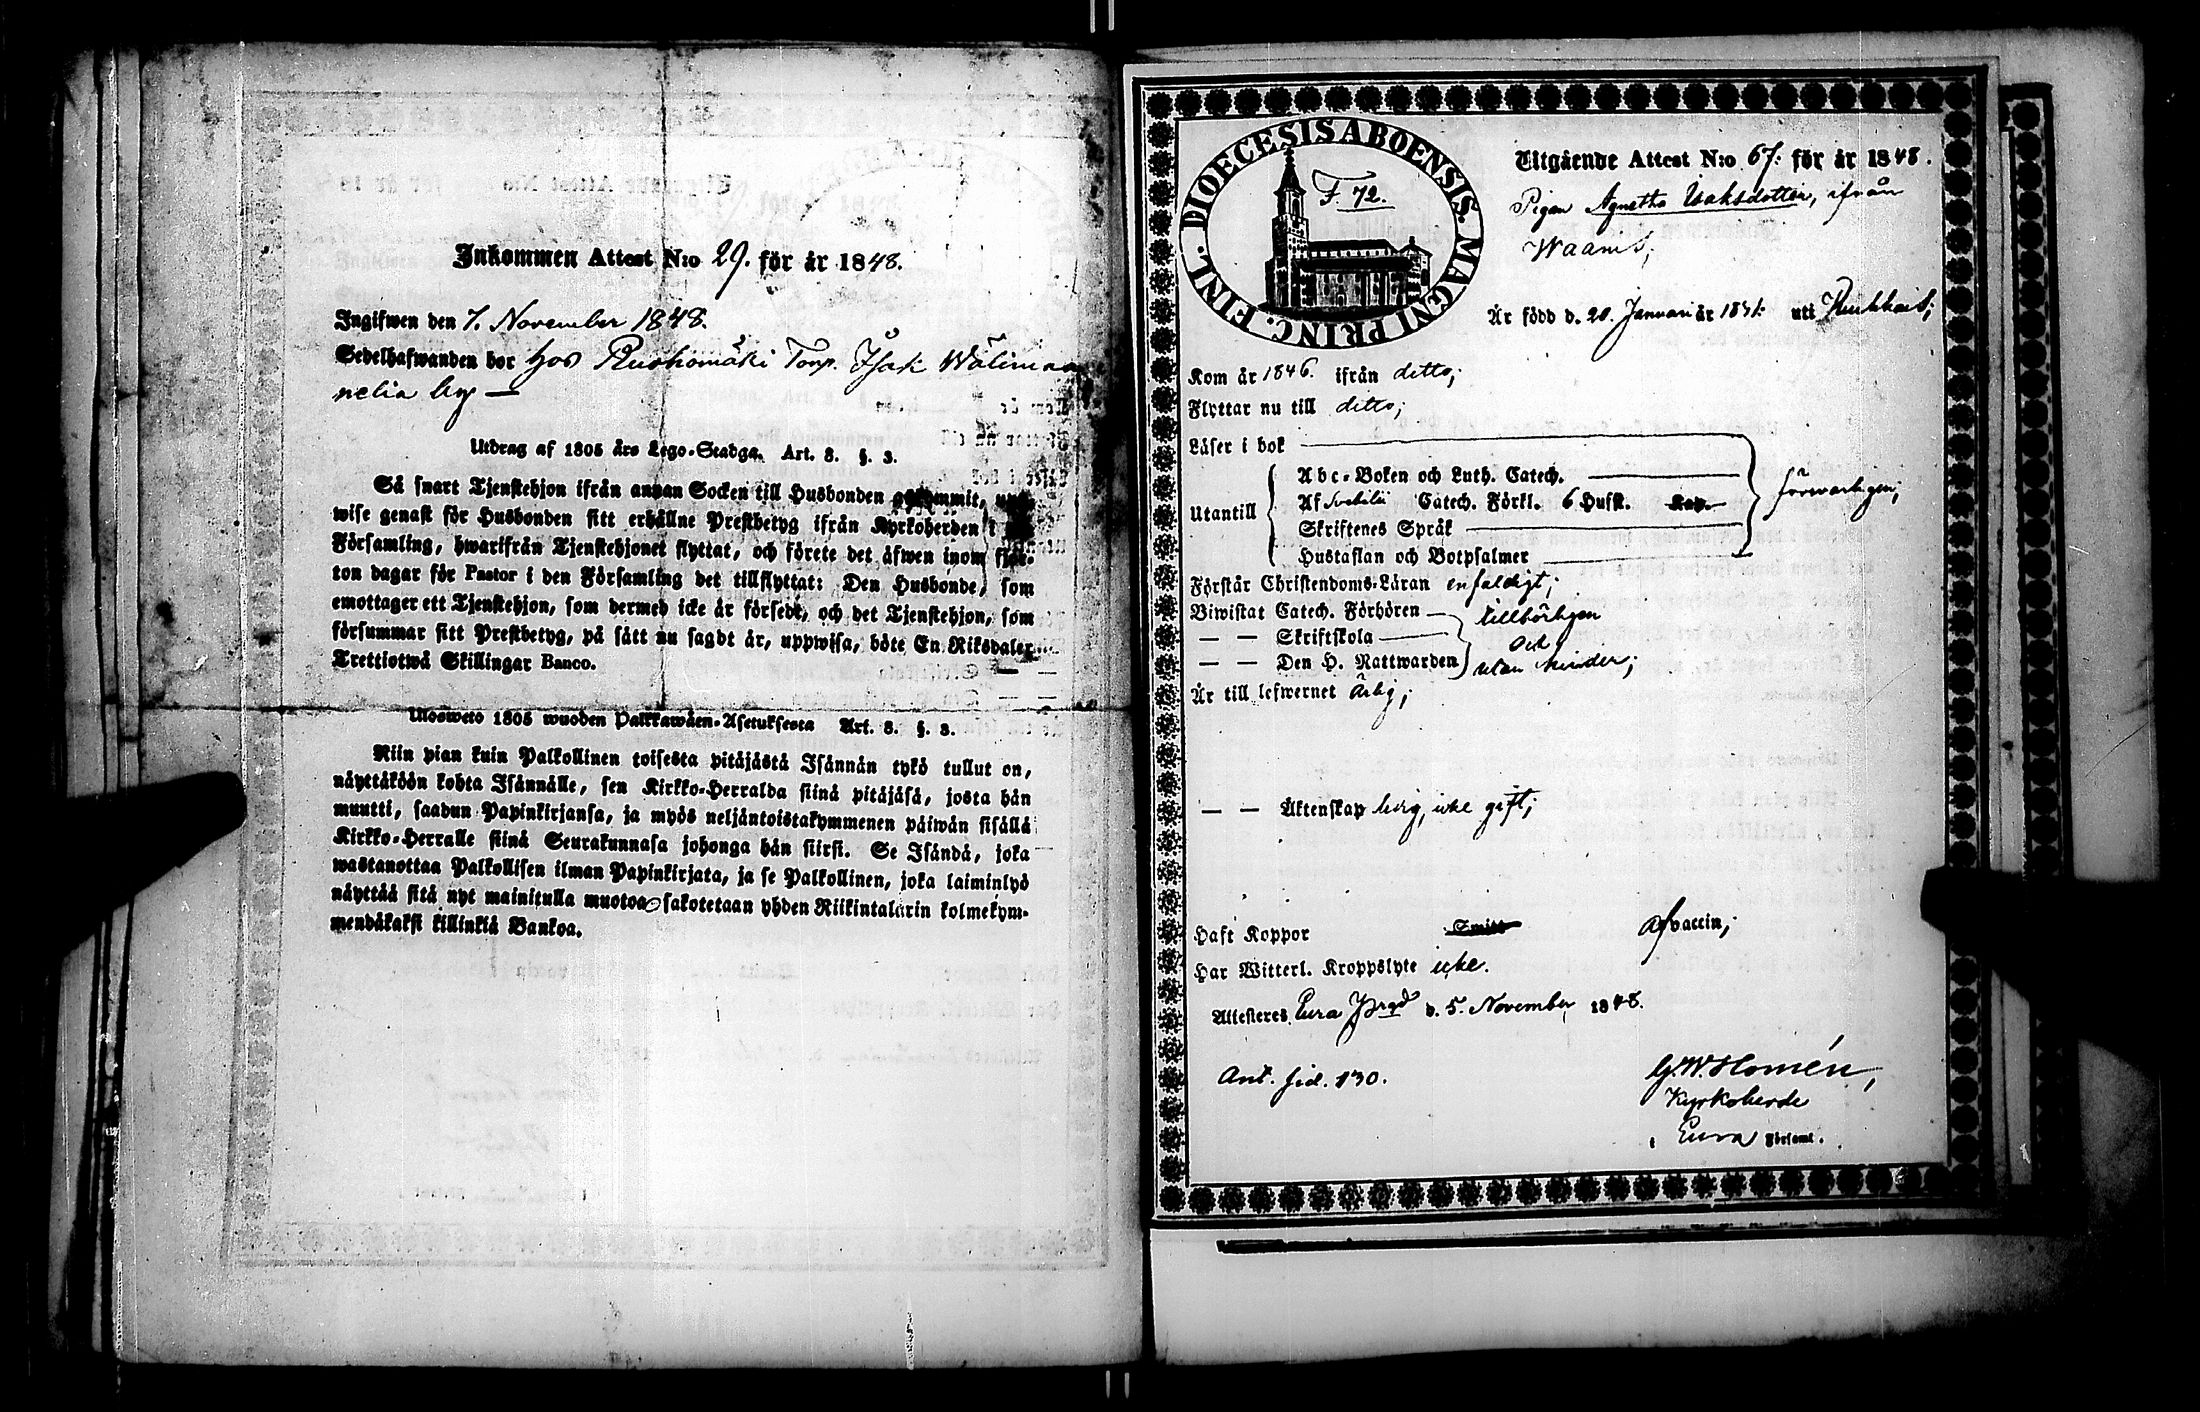 Inkommen Attest N:o 29. för år 1848.
Ingifwen den 7. November 1848.
Sedelhafwanden bor hos Ruohomäki Torp. Isak Wälimaa
nelia by —
Utdrag af 1805 års Lego-Stadga. Art. 8. §. 3.
Så snart Tjenstehjon ifrån annan Socken till Husbonden ankommit, upp-
wise genast för Husbonden sitt erhållne Prestbetyg ifrån Kyrkoherden i
Församling, hwarifrån Tjenstehjonet flyttat, och förete det äfwen inom fjor-
ton dagar för Pastor i den Församling det tillflyttat: Den Husbonde, som
emottager ett Tjenstehjon, som dermed icke är försedt, och det Tjenstehjon, som
försummar sitt Prestbetyg, på sätt nu sagdt är, uppwisa, böte En Riksdaler
Trettiotwå Skillingar Banco.
Ulosweto 1805 wuoden Palkkawäen-Asetuksesta Art. 8. §. 3.
Niin pian kuin Palkollinen toisesta pitäjästä Isännän tykö tullut on,
näyttäköön kohta Isännälle, sen Kirkko-Herralda siinä pitäjäsä, josta hän
muutti, saadun Papinkirjansa, ja myös neljäntoistakymmenen päiwän sisällä
Kirkko-Herralle siinä Seurakunnasa johonga hän siirsi. Se Isändä, joka
wastanottaa Palkollisen ilman Papinkirjata, ja se Palkollinen, joka laiminlyö
näyttää sitä nyt mainitulla muotoa, sakotetaan yhden Riikintalarin kolmekym-
mendäkaksi killinkiä Bankoa.
DIOECESIS ABOENSIS. MAGNI PRINC. FINL.
F. 72.
Utgående Attest N:o 67. för år 1848.
Pigan Agnetha Isaksdotter, ifrån
Waanis;
Är född d. 20. Januari år 1831. uti
Kom år 1846. ifrån ditto;
Flyttar nu till ditto;
Läser i bok
Utantill
Abc-Boken och Luth. Catech.
Af Svebilii Catech. Förkl. 6 Hufst. Kap.
Skriftenes Språk
Hustaflan och Botpsalmer
försvarligen;
Förstår Christendoms-Läran enfaldigt;
Biwistat Catech. Förhören — tillbörligen
— — Skriftskola — och
— — Den H. Nattwarden utan hinder;
Är till lefwernet Ärlig;
— — Äktenskap ledig, icke gift;
Haft Koppor Smitt af vaccin;
Har Witterl. Kroppslyte icke.
Attesteres Eura Prgd d. 5. November 1848.
Ant. sid. 130.
G. W. Homén,
Kyrkoherde
i Eura Församl.